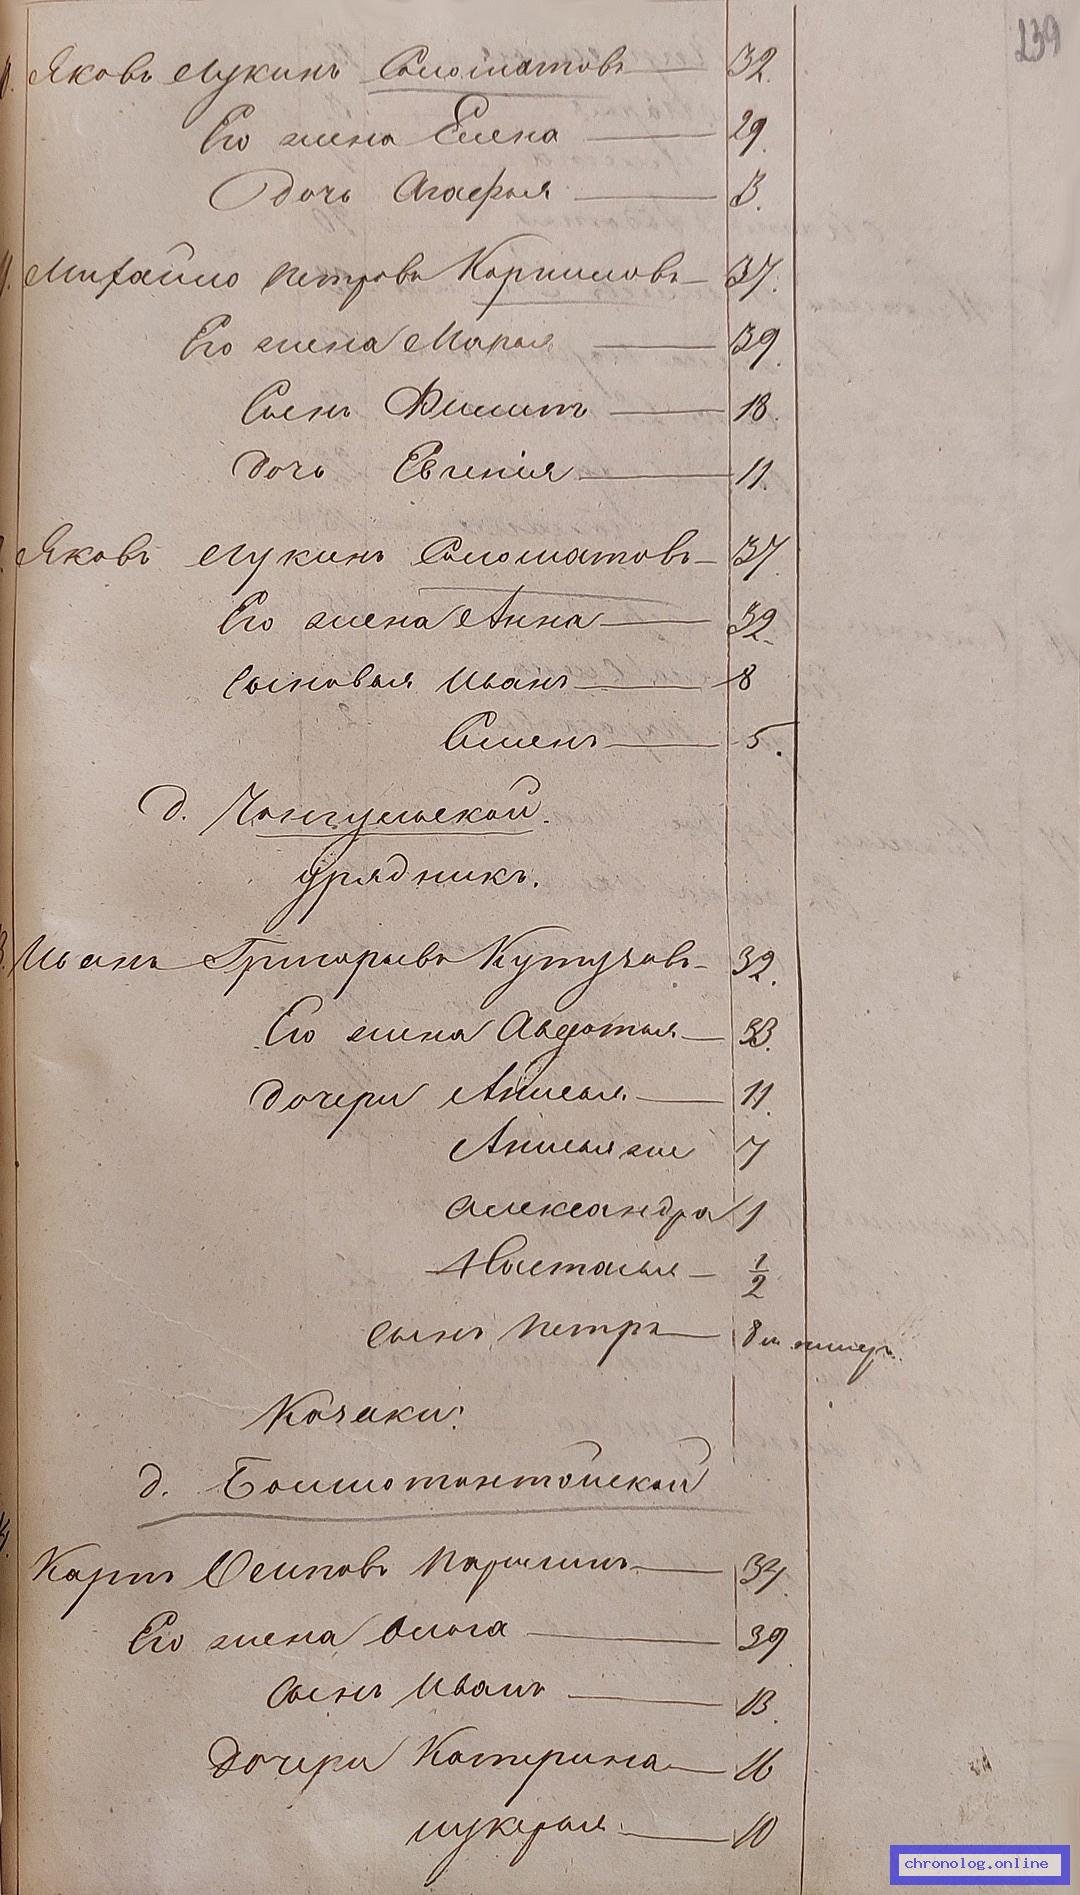 239
Яковъ Лукинъ Соломатовъ 32.
Его жена Елена 29.
Дочь Агафья 3.
Михайло Петровъ Корниловъ 37.
Его жена Марья 39.
Сынъ Филипъ 18.
Дочь Евгенія 11.
Яковъ Лукинъ Соломатовъ 37.
Его жена Анна 32.
Сыновья Иванъ 8
Семенъ 5.
д. Чонгульской.
Урядникъ.
Иванъ Григорьевъ Кутузовъ 32.
Его жена Авдотья 33.
Дочери Анисья 11.
Анисья же 7
Александра 1
Настасья 1/2
Сынъ Петръ 8 м.
Казаки:
д.
Карпъ Осиповъ 34.
Его жена Ольга 39.
Сынъ Иванъ 13.
Дочери Катерина 16
Лукерья 10
chronolog.online